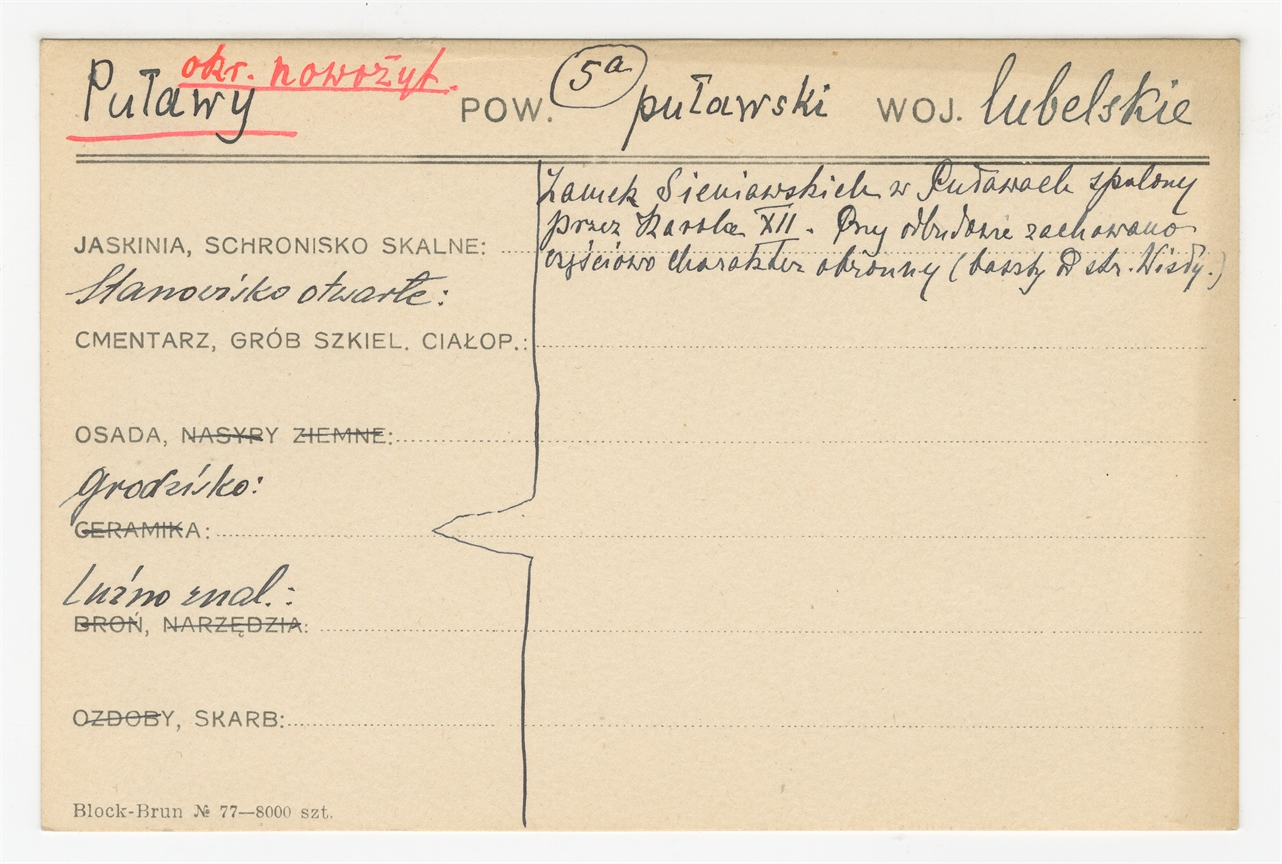 okr. nowożyt.
Puławy POW. 5a puławski WOJ. lubelskie
Zamek Sieniawskich w Puławach spalony
przez Karola XII. Przy odbudowie zachowano
częściowo charakter obronny (baszty od str. Wisły.)
JASKINIA, SCHRONISKO SKALNE:
Stanowisko otwarte:
CMENTARZ, GRÓB SZKIEL. CIAŁOP.:
OSADA, NASYPY ZIEMNE:
Grodzisko:
CERAMIKA:
Luźno znal.:
BROŃ, NARZĘDZIA:
OZDOBY, SKARB:
Block-Brun № 77—8000 szt.